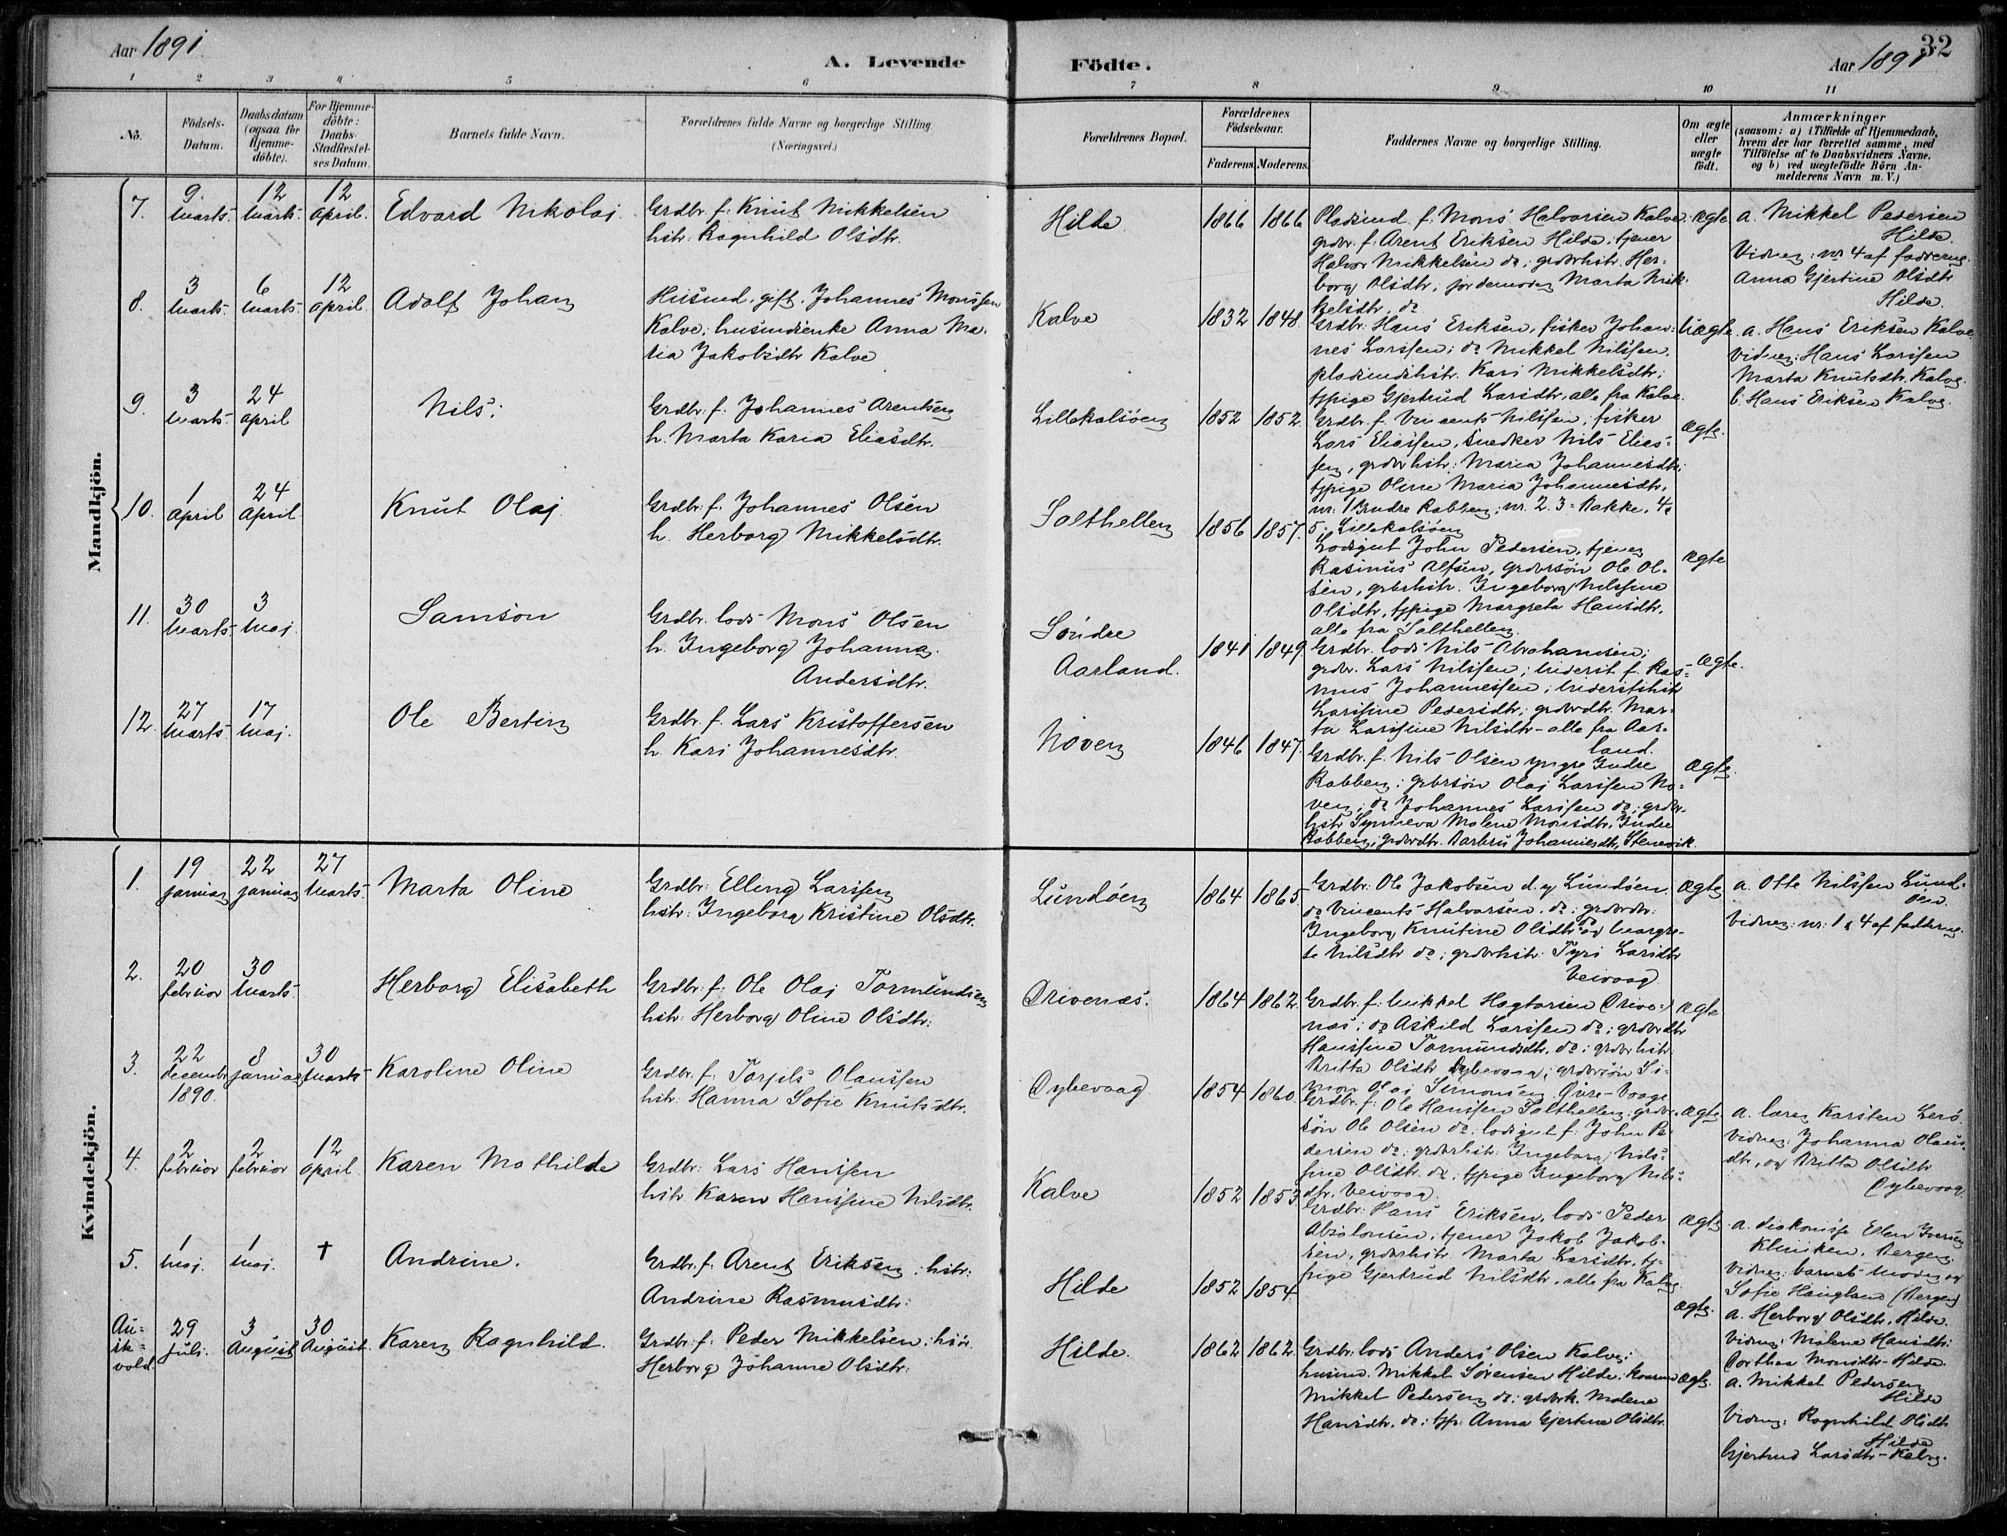 Aar 1891.
A. Levende
Födte.
Aar 1891
32
1 2 3 4 5 6 7 8 9 10 11
No.
Födsels-Datum.
Daabsdatum (ogsaa for Hjemme-döbte).
For Hjemme-döbte: Daabs-Stadfæstel-ses Datum.
Barnets fulde Navn.
Forældrenes fulde Navne og borgerlige Stilling
(Næringsvei.)
Forældrenes Bopæl.
Forældrenes Födselsaar.
Faderens. Moderens.
Faddernes Navne og borgerlige Stilling.
Om ægte eller uægte födt.
Anmærkninger
(saasom: a) i Tilfælde af Hjemmedaab, hvem der har forrettet samme, med Tilföielse af to Daabsvidners Navne. og b) ved uægtefödte Börn An-melderens Navn m. V.)
Mandkjön.
7. 9 marts. 12 marts. 12 april. Edvard Nikolai.
Grdbr. f. Knut Mikkelsen
hstr. Ragnhild Olsdtr.
Hilde. 1866 1866
Pladsmd. f. Mons Halvorsen Kalve;
grdbr. f. Arent Eriksen Hilde; tjener
Halvor Mikkelsen do; grdbrhstr. Her-
borg Olsdtr, jordemoder Marta Mik-
kelsdtr, do
ægte
a. Mikkel Pedersen
Hilde.
Vidner: nr 4 af fadderne.
Anna Gjertine Olsdtr
Hilde.
8. 3 marts. 6 marts. 12 april. Adolf Johan
Husmd. gift. Johannes Monssen
Kalve; husmdienke Anna Ma-
ria Jakobsdtr Kalve
Kalve 1832 1848
Grdbr. Hans Eriksen, fisker Johan-
nes Larssen; do Mikkel Nilssen,
pladsmdshstr. Kari Mikkelsdtr;
tjpige Gjertrud Larsdtr, alle fra Kalve.
Uægte
a. Hans Eriksen Kalve
vidner: Hans Larssen
Marta Knutsdtr. Kalve.
b. Hans Eriksen Kalve.
9. 3 marts. 24 april Nils.
Grdbr. f. Johannes Arentsen
h. Marta Karia Eliasdtr.
Lillekalsöen 1852 1852.
Grdbr. f. Vincents Nilssen, fisker
Lars Eliassen, snedker Nils Elias-
sen, grdbrhstr. Maria Johannesdtr;
tjpige Oline Maria Johannesdtr,
nr. 1 Indre Rabben, nr. 2. 3 Bakke, 4.
5. Lillekalsöen
ægte.
10. 1 april 24 april. Knut Olai.
Grdbr. f. Johannes Olsen
h. Herborg Mikkelsdtr.
Solthellen 1856 1857.
Lodsgut John Pedersen, tjener
Rasmus Alfsen, grdbrsön Ole Ol-
sen, grbrhstr. Ingeborg Nilssine
Olsdtr, tjpige Margreta Hansdtr,
alle fra Solthellen.
ægte
11. 30 marts. 3 maj. Samson
Grdbr. lods Mons Olsen
h. Ingeborg Johanna
Andersdtr.
Söndre
Aarland. 1841 1849
Grdbr. lods Nils Abrahamsen;
grdbr. Lars Nilssen; inderst f. Ras-
mus Johannessen; inderstshstr
Larssine Pedersdtr; grdbrdtr Mar-
ta Larssine Nilsdtr - alle fra Aar-
land.
ægte.
12. 27 marts. 17 maj. Ole Bertin
Grdbr. f. Lars Kristoffersen
h. Kari Johannesdtr.
Noven 1846 1847.
Grdbr. f. Nils Olsen yngre Indre
Rabben; grbrsön Olai Larssen No-
ven; do Johannes Larssen do; grdbr-
hstr Synneva Malene Monsdtr, Indre
Rabben; grdbrdtr. Barbru Johannesdtr, Stenevik.
ægte.
Kvindekjön.
1. 19 januar 22 januar 27 marts. Marta Oline
Grdbr. Elling Larssen
hstr. Ingeborg Kristine Olsdtr.
Lundöen 1864 1865.
Grdbr. Ole Jakobsen d. y Lundöen.
do Vincents Halvorsen. do; grdbrdtr.
Ingeborg Knutine Olsdtr do og Margre-
te Nilsdtr do; grdbrhstr. Tyri Larsdtr
Veivaag
ægte
a. Otte Nilssen Lund-
öen.
Vidner: nr. 1 & 4 af fadderne.
2. 20 februar 30 marts. Herborg Elisabeth
Grdbr. f. Ole Olai Tormundsen
hstr. Herborg Oline Olsdtr.
Drivenæs. 1864 1862.
Grdbr. f. Mikkel Hagtorsen Drive-
næs; do Askild Larssen do; grdbrdtr
Hanssine Tormundsdtr. do; grdbrhstr
Britta Olsdtr Dybevaag; grdbrsön Si-
mon Olai Simonsen Övre-Vaage
ægte
3. 22 decembr 1890. 8 januar 30 marts. Karoline Oline
Grdbr. f. Torjils Olaussen
hstr. Hanna Sofie Knutsdtr.
Dybevaag 1854 1860.
Grdbr. f. Ole Hanssen Solthellen; grdbr-
sön Ole Olsen do. lodsgut f. John Pe-
dersen do; grdbrhstr. Ingeborg Nils-
sine Olsdtr. do, tjpige Ingeborg Nils-
dtr. Veivaag.
ægte
a. lærer Karsten Lerö.
Vidner: Johanna Olaus-
dtr, og Britta Olsdtr
Dybevaag.
4. 2 februar 2 februar 12 april. Karen Mathilde
Grdbr. Lars Hanssen
hstr Karen Hanssine Nilsdtr.
Kalve 1852 1853.
Grdbr. Hans Eriksen, lods Peder
Absalonsen, tjener Jakob Jakob-
sen, grdbrhstr. Marta Larsdtr, tj-
pige Gjertrud Nilsdtr, alle fra Kalve
ægte
a. diakonisse Ellen Iversen
Kliniken, Bergen;
vidner: barnets moder og
Sofie Haugland (Bergen)
5. 1 maj. 1 maj. † Andrine.
Grdbr. f. Arent Eriksen; hstr.
Andrine Rasmusdtr.
Hilde 1852 1854.
ægte.
a. Herborg Olsdtr, Hilde.
Vidner: Malene Hansdtr.
Dorthea Monsdtr - Hilde.
Au-
sk-
vold 29 juli. 3 August 30 August. Karen Ragnhild.
Grdbr. f. Peder Mikkelsen. hstr
Herborg Johanne Olsdtr.
Hilde. 1862 1862.
Grdbr. lods Anders Olsen Kalve;
husmd. Mikkel Sörensen Hilde; kaarmd
Mikkel Pedersen do; grdbrk. Malene
Hansdtr. do; tjp. Anna Gjertine Olsdtr.
ægte.
a. Mikkel Pedersen
Hilde
Vidner: Ragnhild Olsdtr
Hilde
Gjertrud Larsdtr - Kalve.